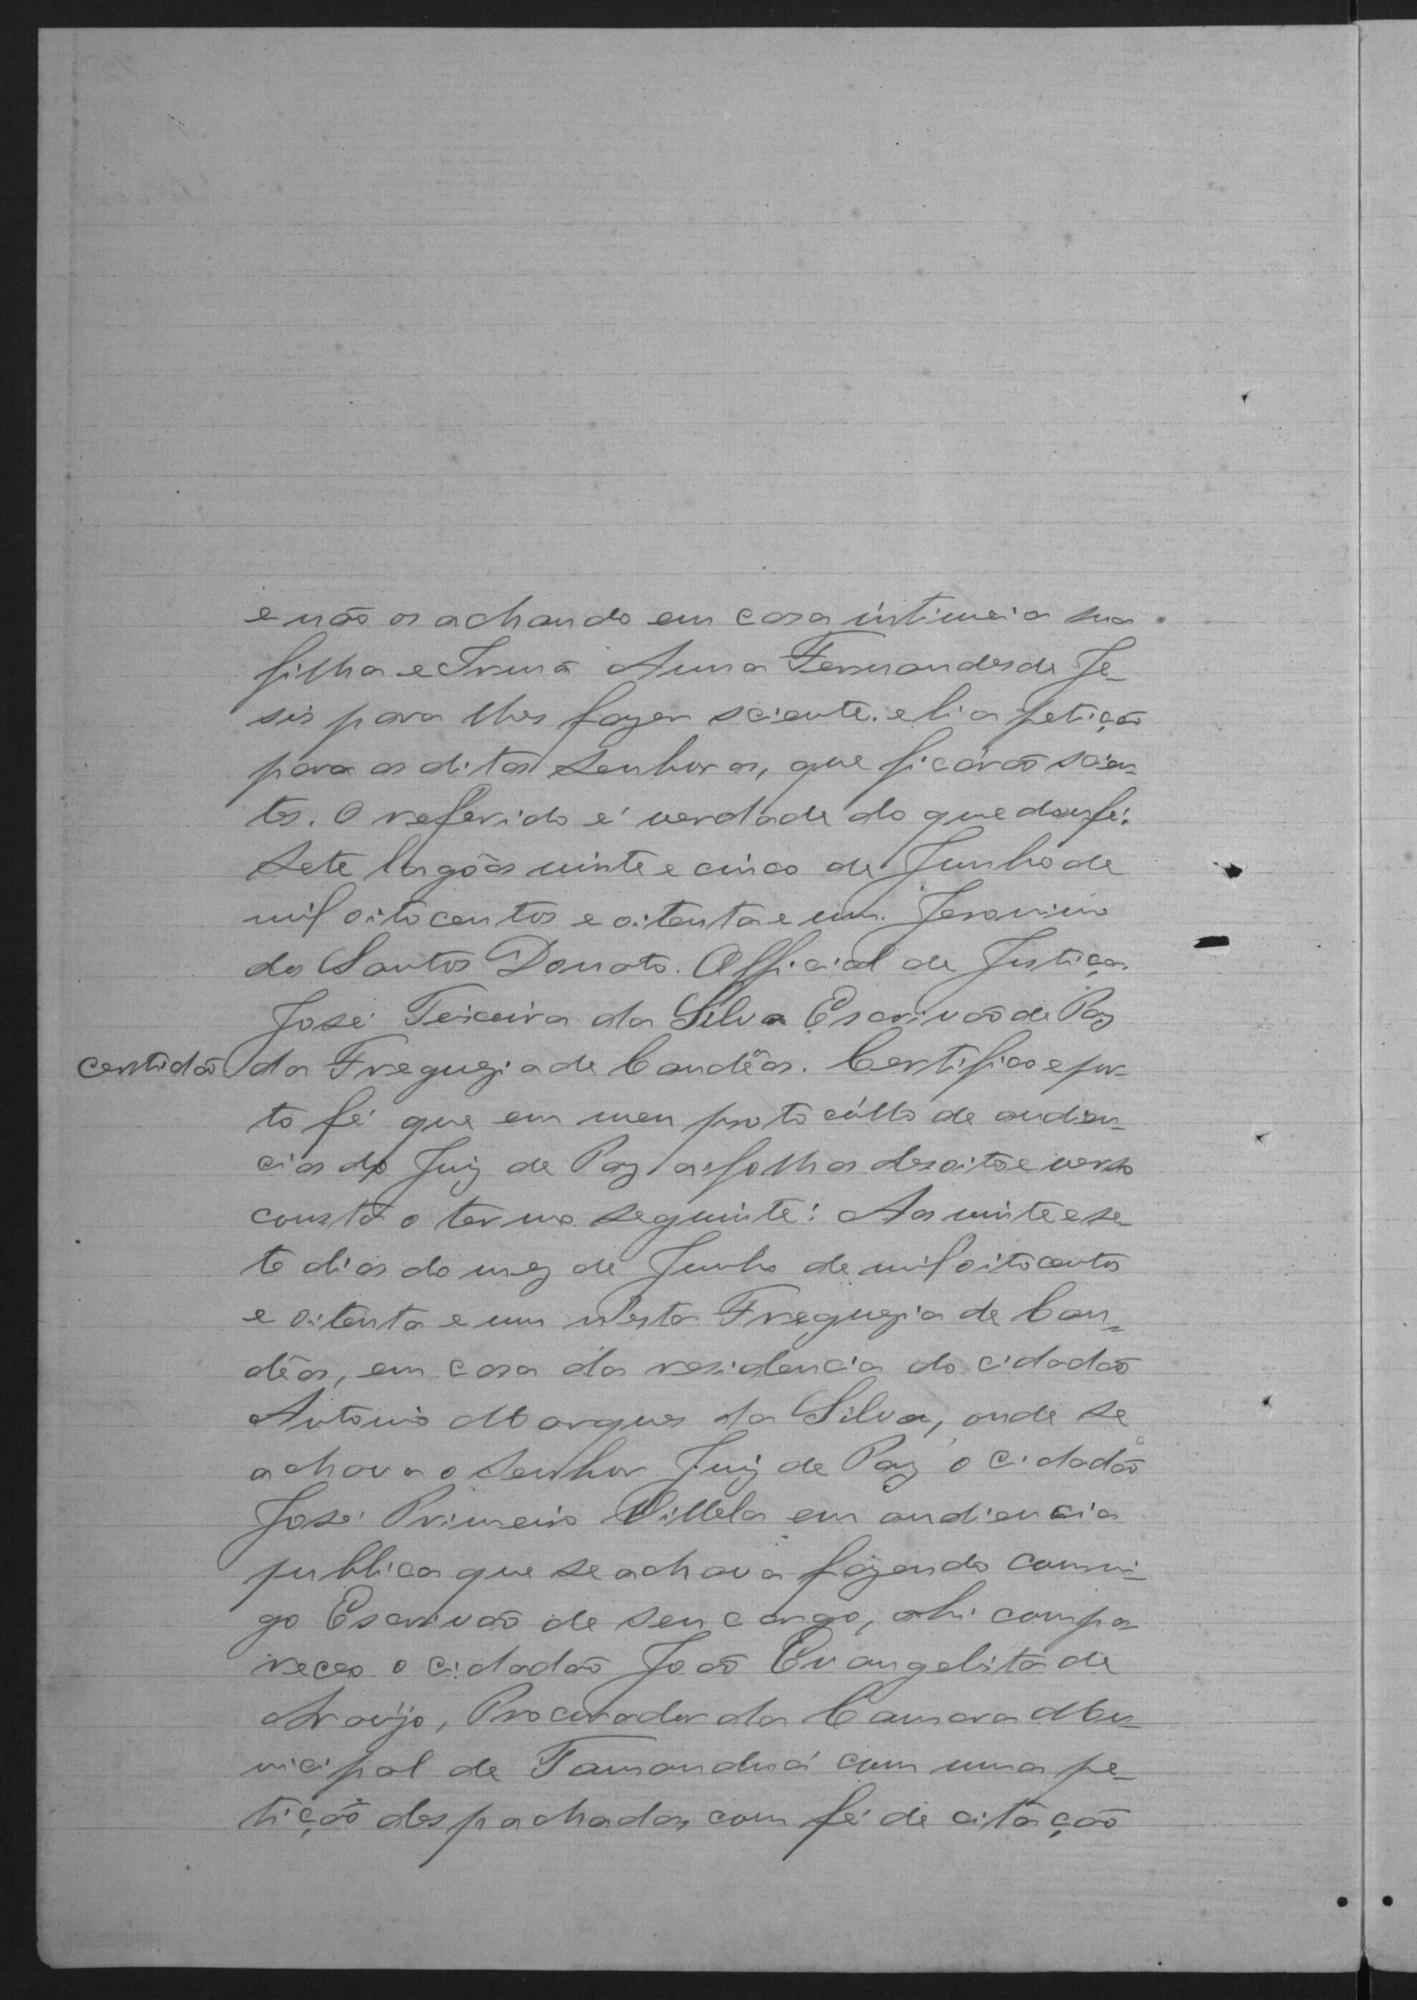 e não os achando em casa intimei a sua
filha e Irmã Anna Fernandes de Je-
sus para lhes fazer sciente. e li a petição
para as ditas Senhoras, que ficárão scien-
tes. O referido é verdade do que dou fé.
Sete lagôas vinte e cinco de Junho de
mil oitocentos e oitenta e um. Jeronimo
dos Santos Donato. Official de Justiça.
José Teixeira da Silva Escrivão de Paz
certidão da Freguezia de Candêas. Certifico e por-
to fé que em meu protocóllo de audien-
cias do Juiz de Paz as folhas desoito e verso
consta o termo seguinte: Aos vinte e se-
te dias do mez de Junho de mil oitocentos
e oitenta e um n'esta Freguezia de Can-
dêas, em casa da residencia do cidadão
Antonio Marques da Silva, onde se
achava o Senhor Juiz de Paz o cidadão
José Primeiro Villela em audiencia
publica que se achava fazendo commi-
go Escrivão de seu cargo, ahi compa
receo o cidadão João Evangelista de
Araújo, Procurador da Camara Mu-
nicipal de Tamanduá com uma pe-
tição despachada, com fé de citação